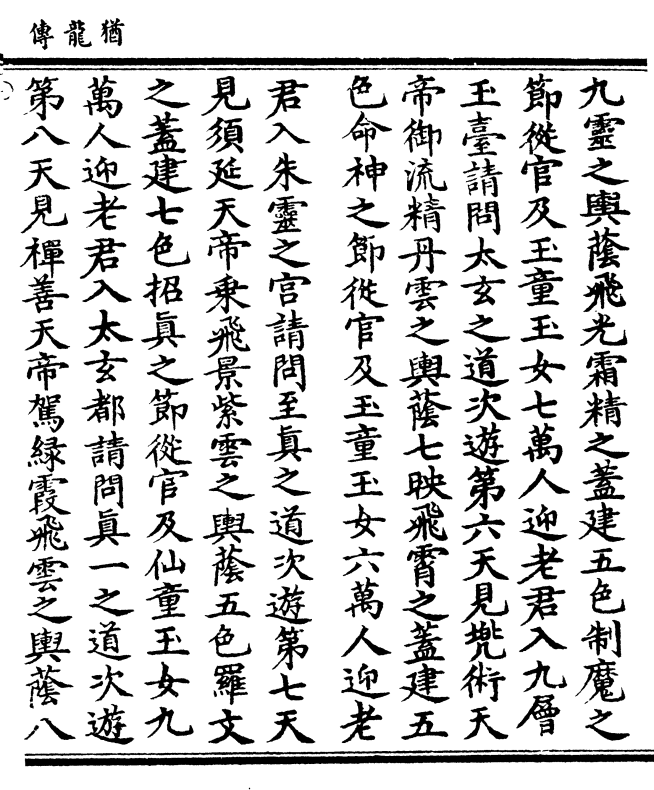 猶龍傳
九靈之輿蔭飛光霜精之蓋建五色制魔之
節從官及玉童玉女七萬人迎老君入九層
玉臺請問太玄之道次遊第六天見兠術天
帝御流精丹雲之輿蔭七映飛霄之蓋建五
色命神之節從官及玉童玉女六萬人迎老
君入朱靈之宮請問至眞之道次遊第七天
見須延天帝乘飛景紫雲之輿蔭五色羅文
之蓋建七色招眞之節從官及仙童玉女九
萬人迎老君入太玄都請問眞一之道次遊
第八天見樿善天帝駕緑霞飛雲之輿蔭八